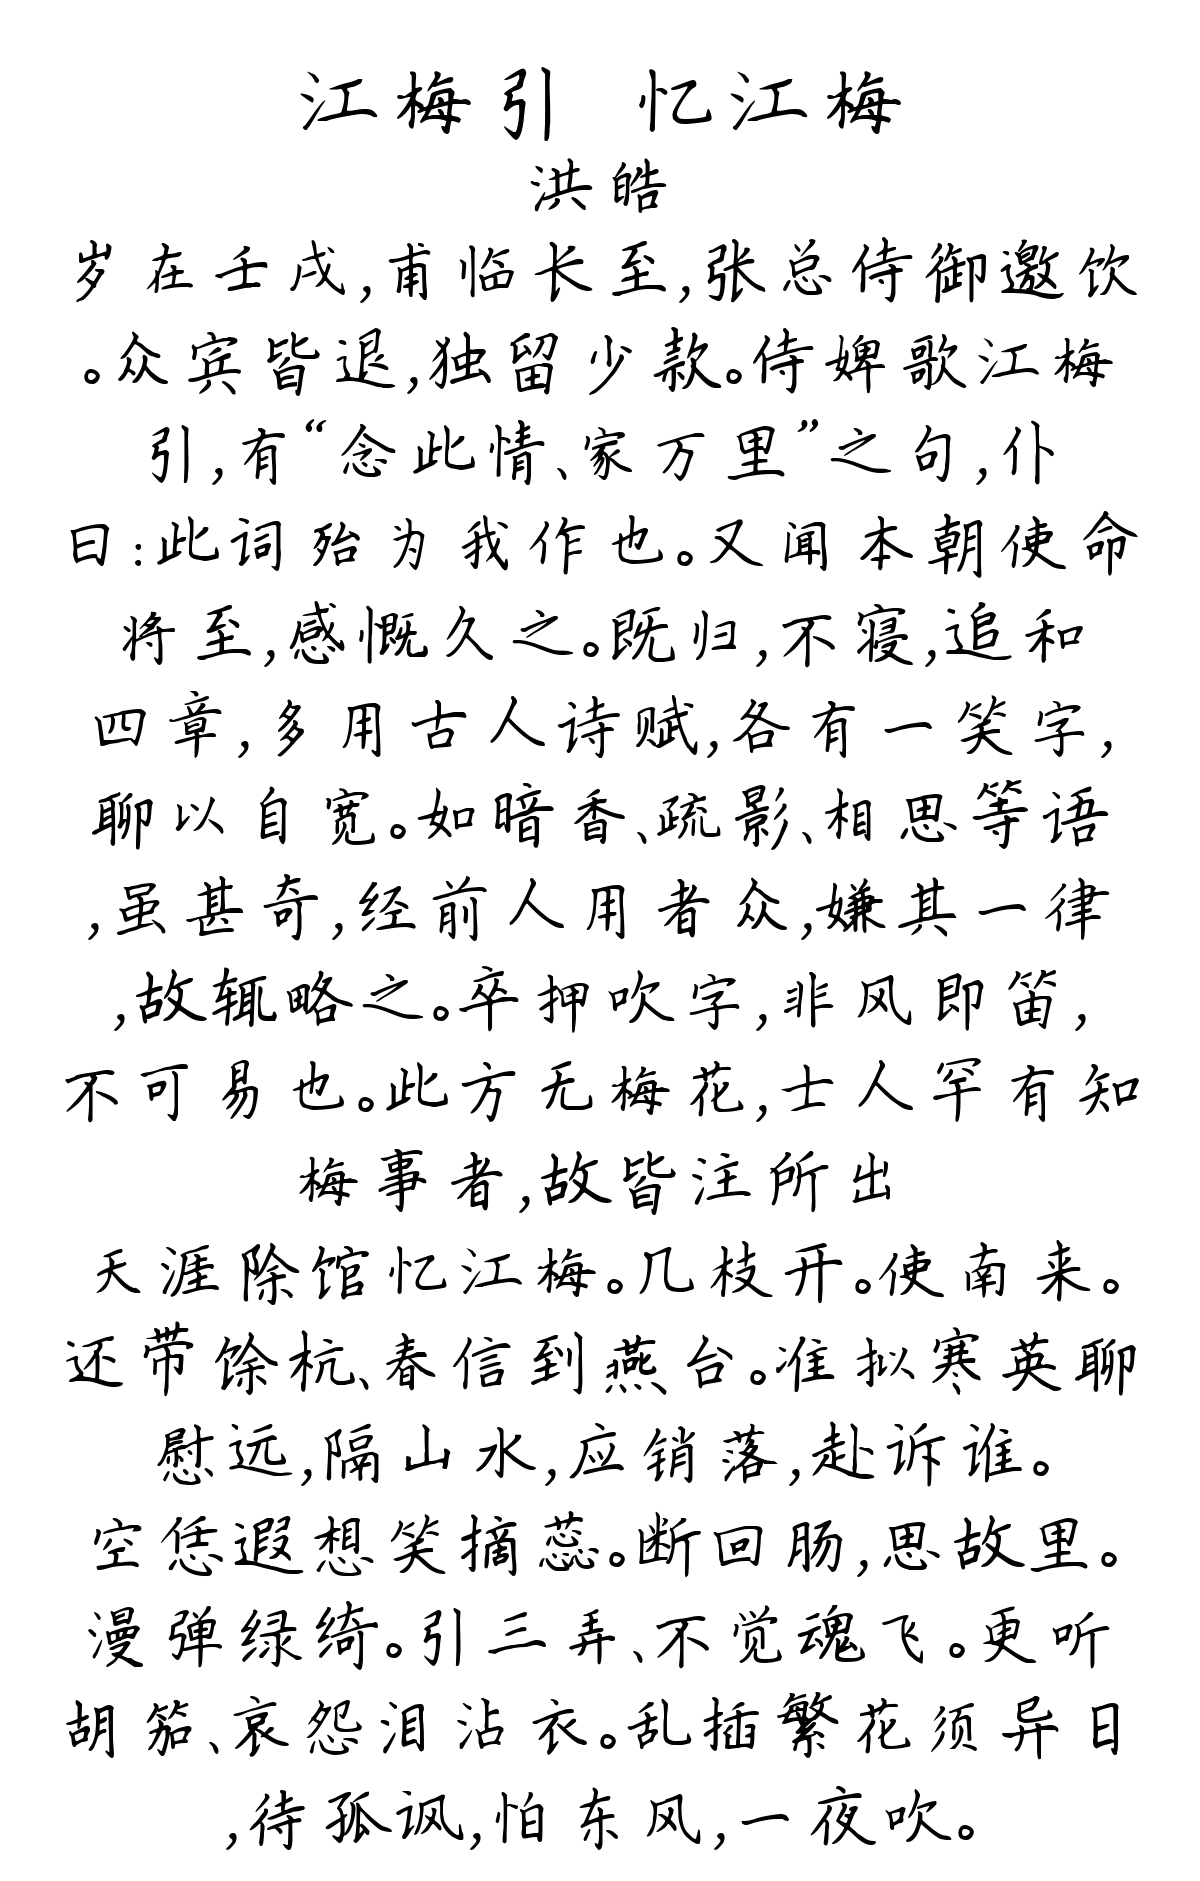 江梅引 忆江梅
洪皓
岁在壬戌,甫临长至,张总侍御邀饮
。众宾皆退,独留少款。侍婢歌江梅
引,有“念此情、家万里”之句,仆
曰:此词殆为我作也。又闻本朝使命
将至,感慨久之。既归,不寝,追和
四章,多用古人诗赋,各有一笑字,
聊以自宽。如暗香、疏影、相思等语
,虽甚奇,经前人用者众,嫌其一律
,故辄略之。卒押吹字,非风即笛,
不可易也。此方无梅花,士人罕有知
梅事者,故皆注所出
天涯除馆忆江梅。几枝开。使南来。
还带馀杭、春信到燕台。准拟寒英聊
慰远,隔山水,应销落,赴诉谁。
空恁遐想笑摘蕊。断回肠,思故里。
漫弹绿绮。引三弄、不觉魂飞。更听
胡笳、哀怨泪沾衣。乱插繁花须异日
,待孤讽,怕东风,一夜吹。